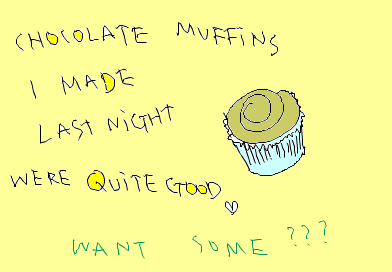 CHOCOLATE MUFFINS
I MADE
LAST NIGHT
WERE QUITE GOOD
WANT SOME ???